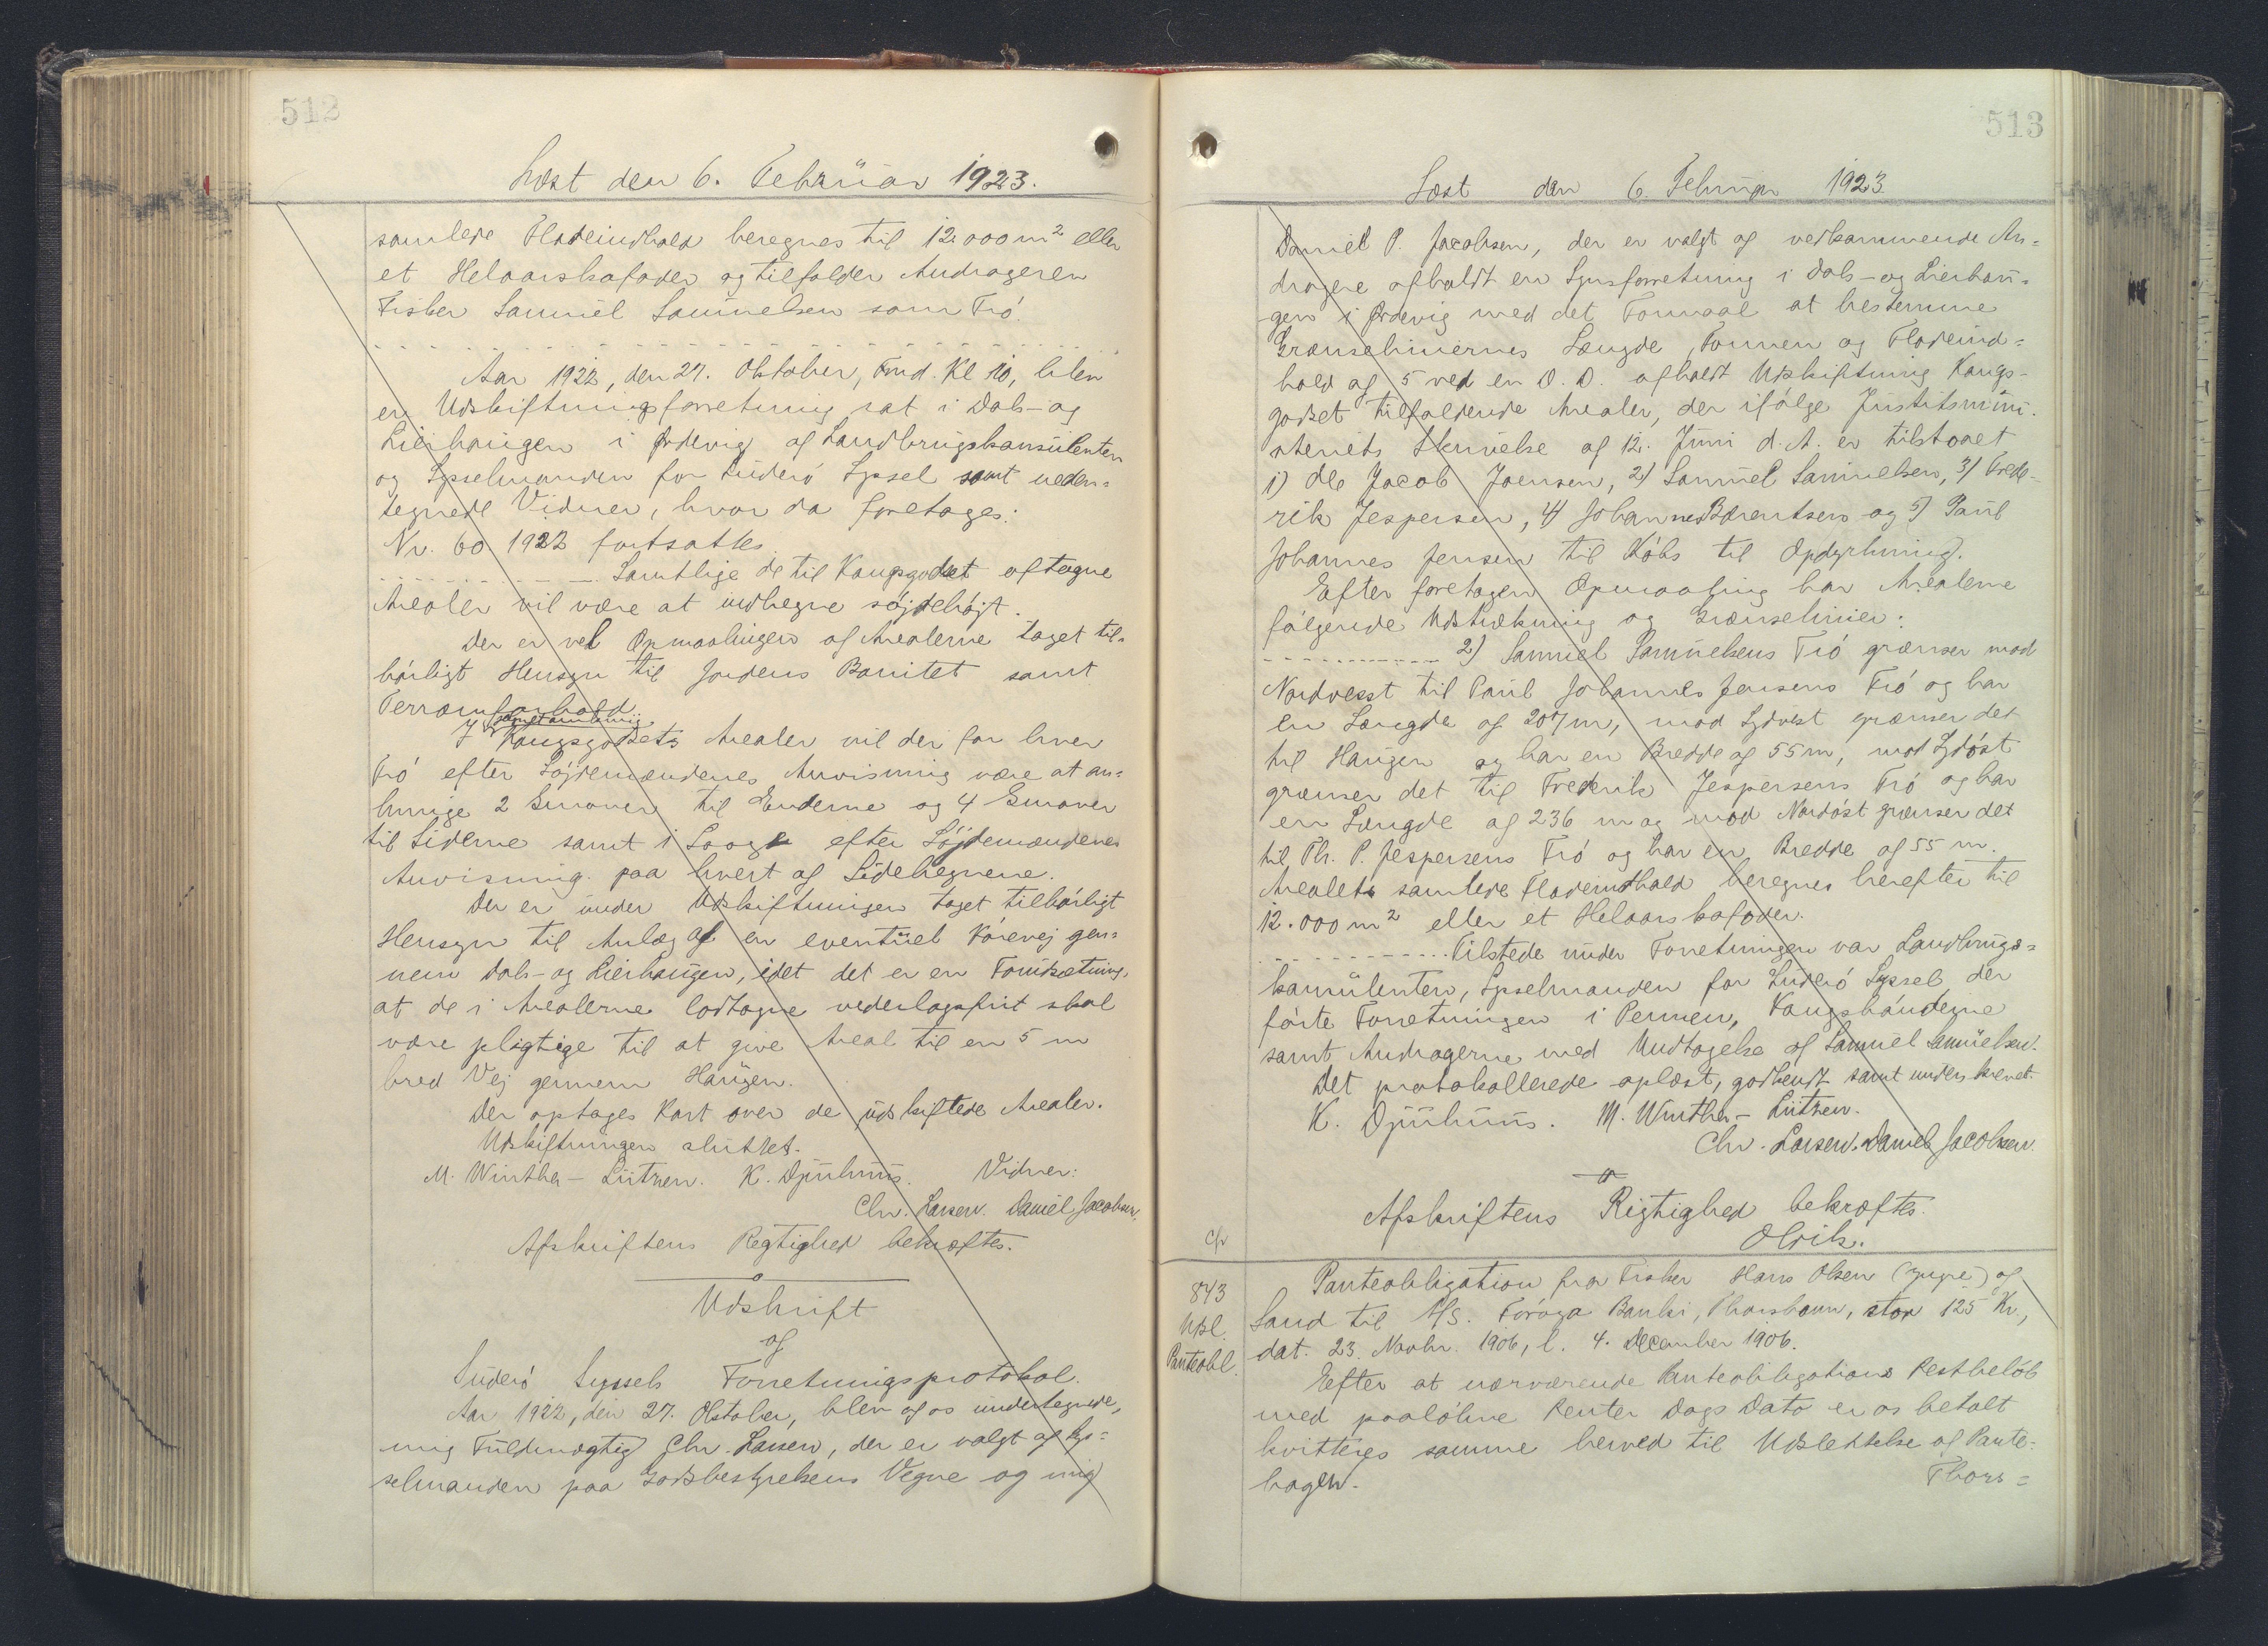 512
Læst den 6. Februar 1923.
samlede Fladeindhold beregnes til 12000 m² eller
et Helaarskofoder og tilfalder Andrageren
Fisker Samuel Samuelsen som Trø.
Aar 1922, den 27. Oktober, Fmd. Kl 10, blev
en Udskiftningsforretning sat i Dals- og
Lierhaugen i Ørdevig af Landbrugskonsulenten
og Sysselmanden for Suderø Syssel samt neden-
tegnede Vidner, hvor da foretoges:
Nr. 60 1922 fortsattes
Samtlige de til Kongsgodset aftagne
Arealer vil være at indhegne søjdehøjt.
Der er ved Opmaalingen af Arealerne taget til-
børligt Hensyn til Jordens Bonitet samt
Terrænforhold.
I Kongsgodsets Arealer vil der for hver
Trø efter Søjdemændenes Anvisning være at an-
bringe 2 Smover til Enderne og 4 Smover
til Siderne samt i Laage efter Søjdemændenes
Anvisning paa hvert af Sidehegnene.
Der er under Udskiftningen taget tilbørligt
Hensyn til Anlæg af en eventuel Kørevej gen-
nem Dals- og Lierhaugen, idet det er en Forudsætning,
at de i Arealerne lodtagne vederlagsfrit skal
være pligtige til at give Areal til en 5 m
bred Vej gennem Haugen.
Der optages Kort over de udskiftede Arealer.
Udskiftningen sluttet.
M. Winther-Lützen. K. Djurhuus. Vidner:
Chr. Larsen. Daniel Jacobsen.
Afskriftens Rigtighed bekræftes.
Udskrift
af
Suderø Syssels Forretningsprotokol.
Aar 1922, den 27. Oktober, blev af os undertegnede,
mig Fuldmægtig Chr. Larsen, der er valgt af Sys-
selmanden paa Godsbestyrelsens Vegne og mig
513
Læst den 6. Februar 1923
Daniel P. Jacobsen, der er valgt af vedkommende An-
dragere afholdt en Synsforretning i Dals- og Lierhau-
gen i Ørdevig med det Formaal at bestemme
Grænseliniernes Længde, Formen og Fladeind-
hold af 5 ved en D. D. afholdt Udskiftning Kongs-
godset tilfaldende Arealer, der ifølge Justitsmini-
steriets Skrivelse af 12. Juni d. A. er tilstaaet
1) Ole Jacob Joensen, 2) Samuel Samuelsen, 3) Frede-
rik Jespersen, 4) Johannes Bærentsen og 5) Paul
Johannes Jensen til Købs til Opdyrkning.
Efter foretagen Opmaaling har Arealerne
følgende Udstrækning og Grænselinier:
2) Samuel Samuelsens Trø grænser mod
Nordvest til Paul Johannes Jensens Trø og har
en Længde af 207 m, mod Sydvest grænser det
til Haugen og har en Bredde af 55 m, mod Sydøst
grænser det til Frederik Jespersens Trø og har
en Længde af 236 m og mod Nordøst grænser det
til Th. P. Jespersens Trø og har en Bredde af 55 m.
Arealets samlede Fladeindhold beregnes herefter til
12.000 m² eller et Helaarskofoder.
Tilstede under Forretningen var Landbrugs-
konsulenten, Sysselmanden for Suderø Syssel, der
førte Forretningen i Pennen, Kongsbønderne
samt Andragerne med Undtagelse af Samuel Samuelsen.
Det protokollerede oplæst, godkendt samt underskrevet.
K. Djurhuus. M. Winther-Lützen.
Chr. Larsen. Daniel Jacobsen.
Afskriftens Rigtighed bekræftes.
Olrik.
843
Udsl.
Panteobl.
Panteobligation fra Fisker Hans Olsen (yngre) af
Sand til A/S. Føroya Banki, Thorshavn, stor 125 Kr.,
dat. 23. Novbr. 1906, l. 4. December 1906.
Efter at nærværende Panteobligations Restbeløb
med paaløbne Renter Dags Dato er os betalt
kvitteres samme herved til Udslettelse af Pante-
bogen.
Thors-